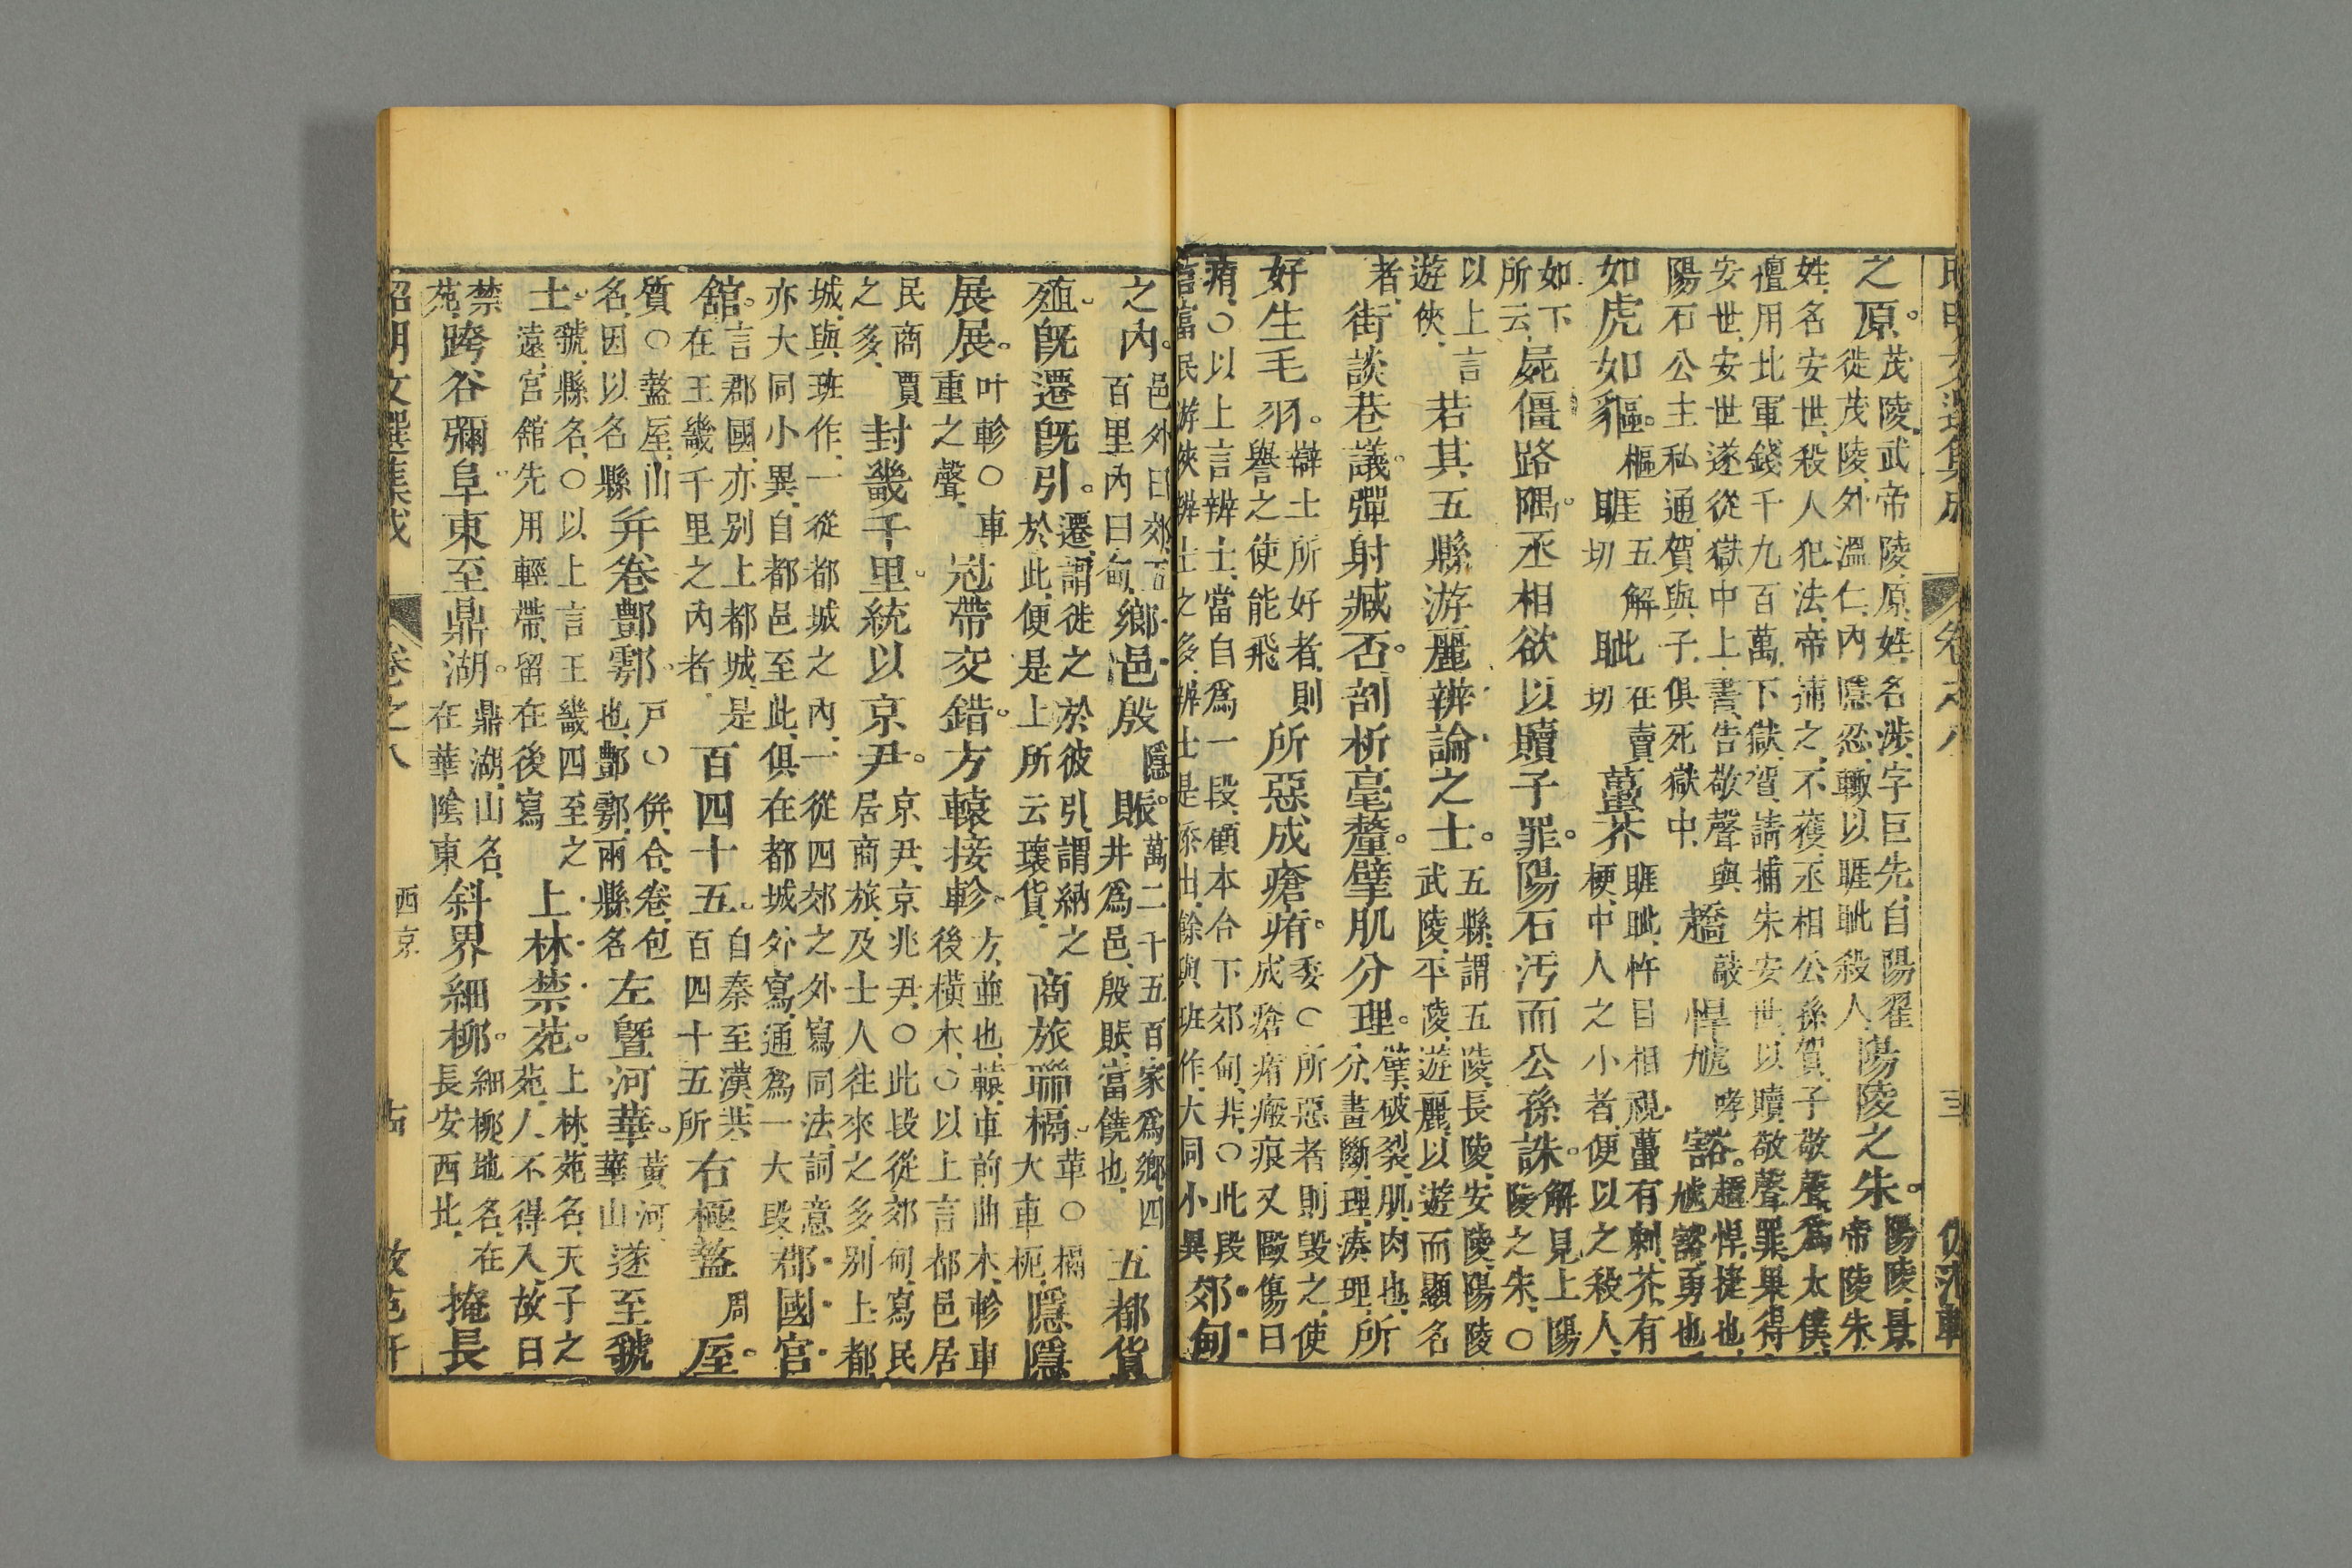 卷之八 三
之原。茂陵武帝陵原姓名涉字巨先自陽翟徙茂陵外溫仁內隱忍輒以睚眦殺人陽陵之朱。陽陵景帝陵朱
姓名安世殺人犯法帝捕之不獲丞相公孫賀子敬聲爲太僕擅用北軍錢千九百萬下獄賀請捕朱安世以贖敬聲罪果得
安世安世遂從獄中上書告敬聲與陽石公主私通賀與子俱死獄中趫敲悍虓哮豁。趫悍捷也虓豁勇也
如虎如貙。樞睚五解切眦在賣切蠆芥睚眦忤目相視蠆有刺芥有梗中人之小者便以之殺人
如下所云屍僵路隅。丞相欲以贖子罪。陽石汚而公孫誅。解見上陽陵之朱〇
以上言遊俠若其五縣游麗辨論之士。五縣謂五陵長陵安陵陽陵武陵平陵遊麗以遊而顯名
者街談巷議。彈射臧否。剖析毫釐。擘肌分理。擘破裂肌肉也分畫斷理湊理所
好生毛羽。辯士所好者則譽之使能飛所惡成瘡痏。委〇所惡者則毀之使成瘡痏瘢痕又毆傷曰
痏〇以上言辨士當自爲一段顧本合下郊甸非〇此段言富民游俠辨士之多辨士是添出餘與班作大同小異郊甸
之內。邑外曰郊五百里內曰甸鄉邑殷隱賑。萬二千五百家爲鄉四井爲邑殷賑當饒也五都貨
殖旣遷旣引。遷謂徙之於彼引謂納之於此便是上所云瓌貨商旅聯槅。革〇槅大車枙隱隱
展展。叶軫〇車重之聲冠帶交錯。方轅接軫。方並也轅車前曲木軫車後橫木〇以上言都邑居
民商賈之多封畿千里統以京尹。京尹京兆尹〇此段從郊甸寫民居商旅及士人往來之多別上都
城與班作一從都城之內一從四郊之外寫同法詞意亦大同小異自都邑至此俱在都城外寫通爲一大段郡國宮
館。言郡國亦別上都城是在王畿千里之內者百四十五。自秦至漢共百四十五所右極盩周厔。
質〇盩厔山名因以名縣幷卷酆鄠。戶〇倂合卷包也酆鄠兩縣名左曁河華。黃河華山遂至虢
土虢縣名〇以上言王畿四至之遠宮館先用輕帶留在後寫上林禁苑。上林苑名天子之苑人不得入故曰
禁苑跨谷彌阜東至鼎湖。鼎湖山名在華陰東斜界細柳。細柳地名在長安西北掩長
昭明文選集成 卷之八 西京